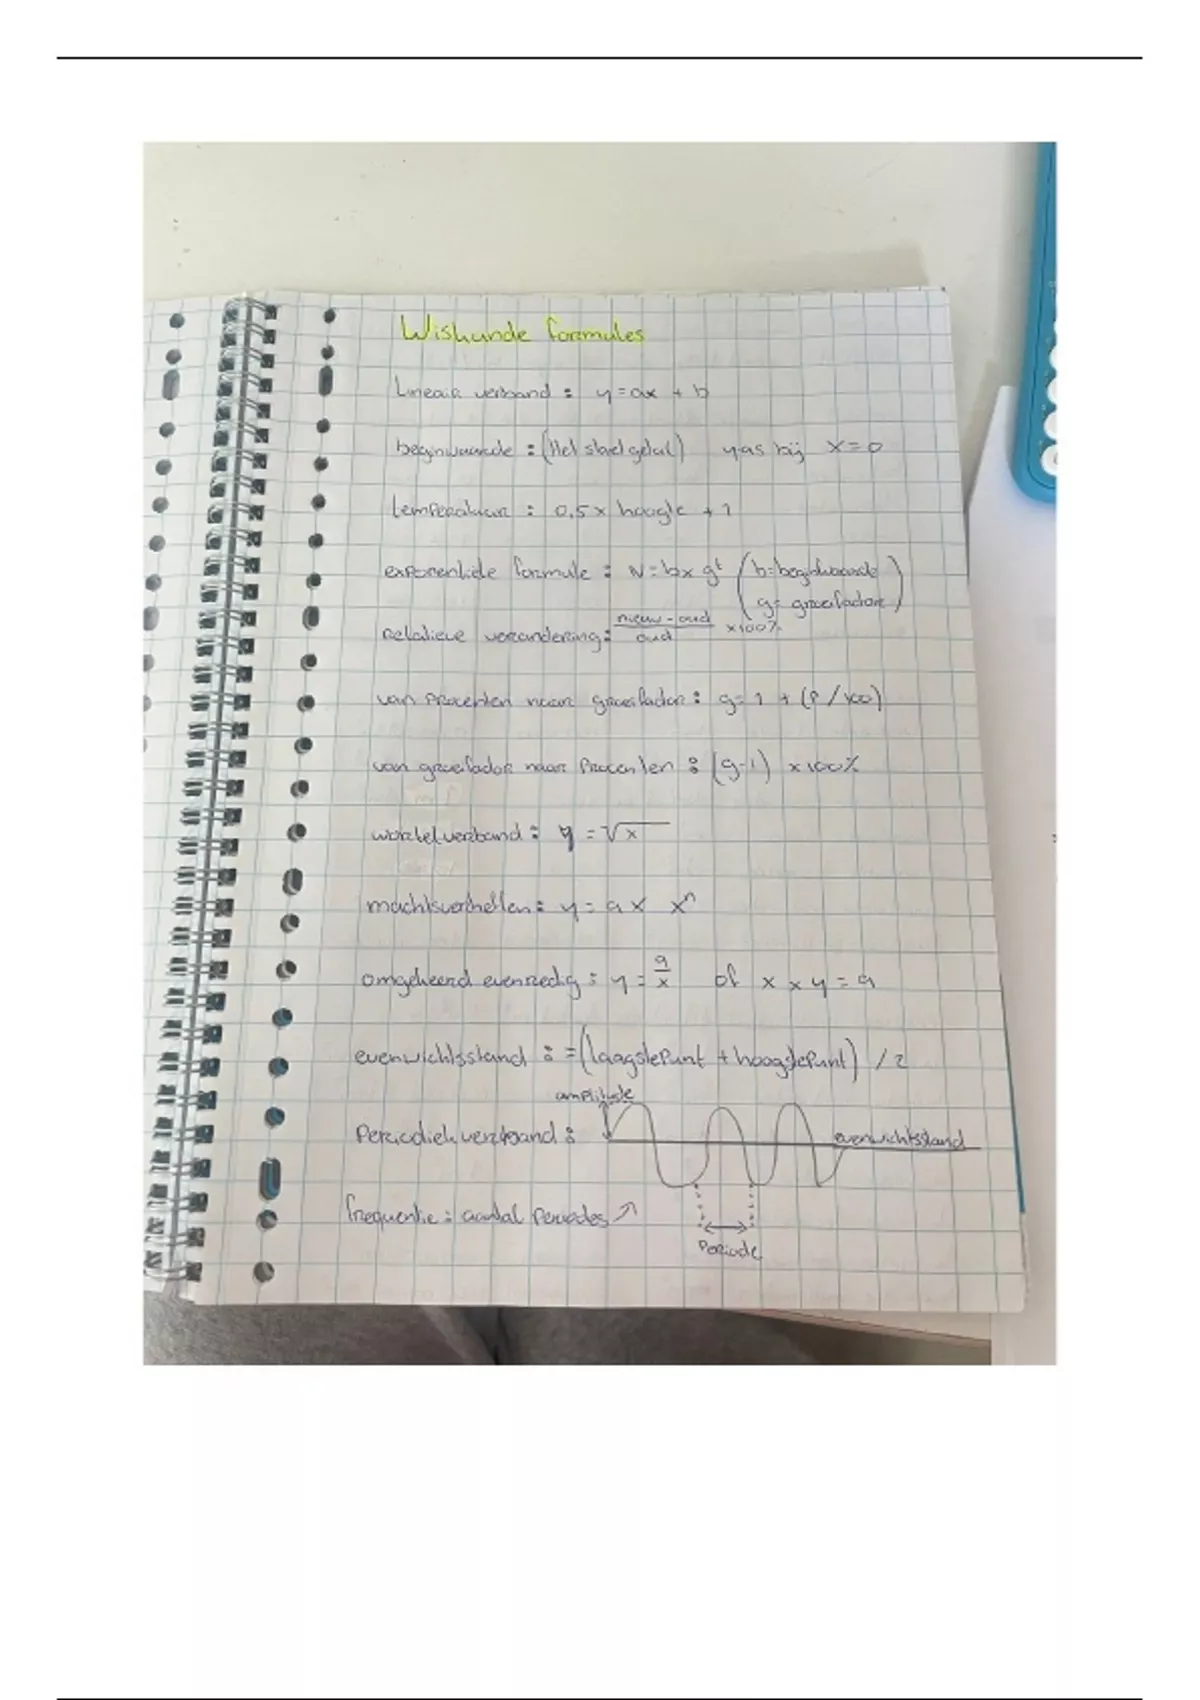 Wiskunde formules
Lineair verband : y = ax + b
beginwaarde : (Het startgetal) y-as bij x = 0
temperatuur : 0,5 x hoogte + 1
exponentiele formule : N = b x g^t (b = beginwaarde
g = groeifactor)
relatieve verandering : nieuw - oud / oud x 100%
van procenten naar groeifactor : g = 1 + (P / 100)
van groeifactor naar procenten : (g-1) x 100%
wortelverband : y = √x
machtsverheffen : y = a x x^n
omgekeerd evenredig : y = a/x of x x y = a
evenwichtsstand : = (laagstepunt + hoogstepunt) / 2
amplitude
Periodiek verband : evenwichtsstand
frequentie : aantal Periodes ↗
Periode